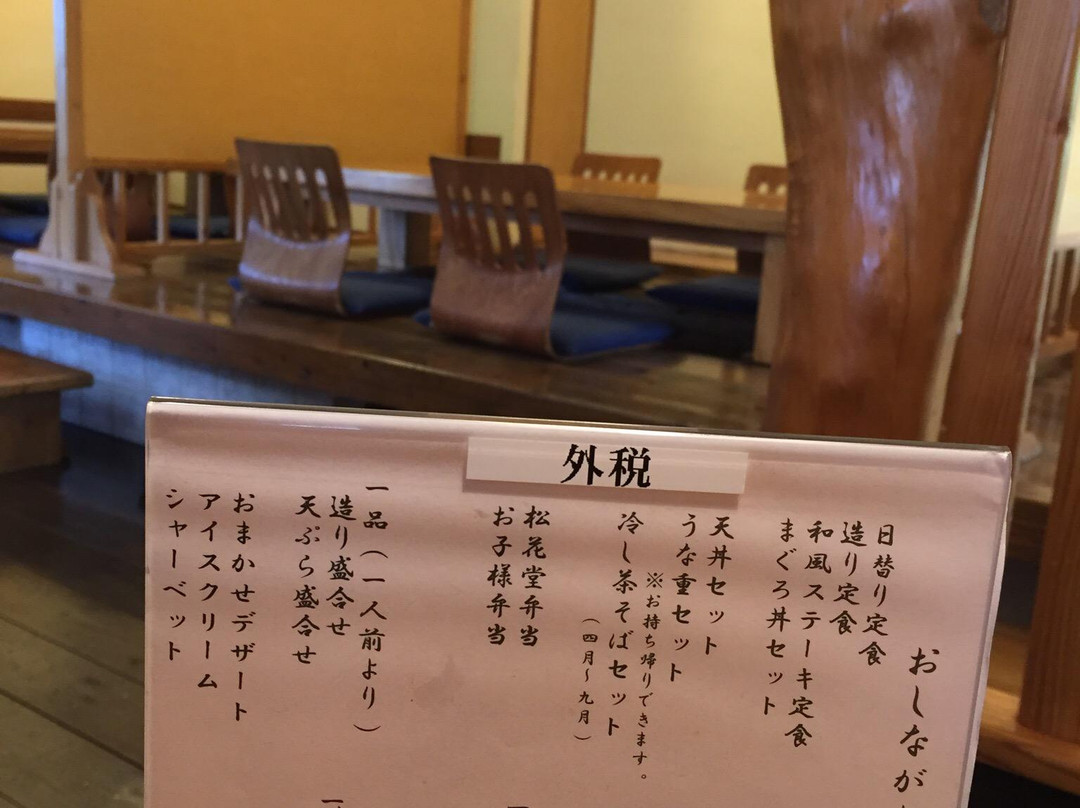 外税
おしなが
日替り定食
造り定食
和風ステーキ定食
まぐろ丼セット
天丼セット
うな重セット
※お持ち帰りできます。
冷し茶そばセット
(四月～九月)
松花堂弁当
お子様弁当
一品(一人前より)
造り盛合せ
天ぷら盛合せ
おまかせデザート
アイスクリーム
シャーベット